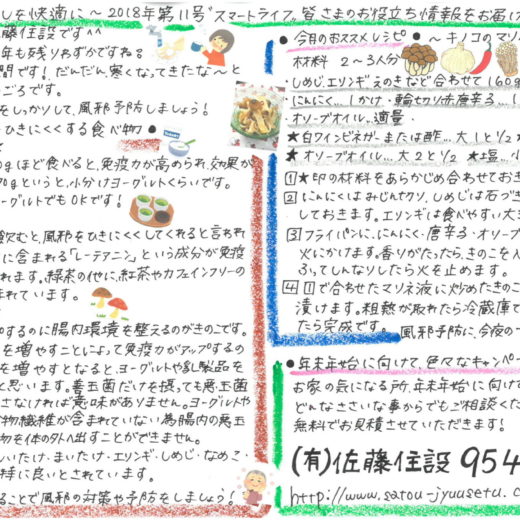 しを快適に～2018年第11号゛スマートライフ。皆さまのお役立ち情報をお届け
藤住設です^^
年も残りわずかですね。
間です！だんだん、寒くなってきたな～と
ごろです。
をしっかりして、風邪予防しましょう！
ひきにくくする食べ物●
gほど食べると、免疫力が高められ、効果が
70gというと、小分けヨーグルトくらいです。
ーグルトでもOKです！
飲むと、風邪をひきにくくしてくれると言われ
に含まれる「レーテアニン」という成分が免疫
れます。緑茶の他に、紅茶やカフェインフリーの
まれています。
プするのに腸内環境を整えるのがきのこです。
を増やすことによって免疫力がアップするの
を増やすとなると、ヨーグルトや乳製品を
と思います。善玉菌だけを摂っても悪玉菌
さなければ意味がありません。ヨーグルトや
物繊維が含まれていない為腸内の悪玉
物を体の外へ出すことができません。
いたけ・まいたけ・エリンギ・しめじ・なめこ・
特に良いとされています。
ることで風邪の対策や予防をしましょう！
●今月のおススメレシピ●～キノコのマリ
材料 2～3人分
・しめじ、エリンギ、えのきなど合わせて160g
・にんにく…1かけ・輪切り赤唐辛子…1
・オリーブオイル…適量
★白ワインビネガーまたは酢…大1と1/2
★オリーブオイル…大2と1/2 ★塩…小
1 ★印の材料をあらかじめ合わせておき
2 にんにくはみじんぎり、しめじは石づき
しておきます。エリンギは食べやすい大
3 フライパンに、にんにく・唐辛子・オリーブ
火にかけます。香りがたったら、きのこを入
ふってしんなりしたら火を止めます。
4 1で合わせたマリネ液に炒めたきのこ
漬けます。粗熱が取れたら冷蔵庫で
たら完成です。 風邪予防に、今夜の
●年末年始に向けて、色々なキャンペー
お家の気になる所、年末年始に向け
どんなささいな事からでもご相談くだ
無料でお見積させていただきます！
(有)佐藤住設 954
http://www.satou-jyuusetu.c